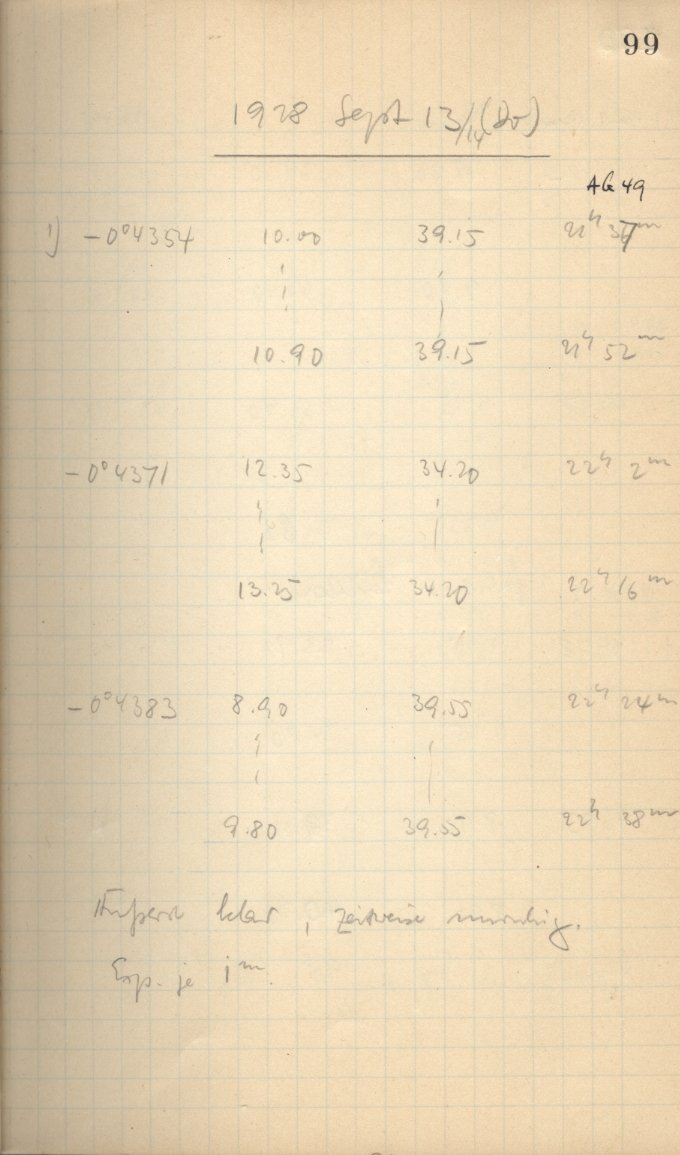 99
1928 Sept 13/14 (Do)
AG 49
1) -0°4354 10.00 39.15 21h 37m
10.90 39.15 21h 52m
-0°4371 12.35 34.20 22h 2m
13.25 34.20 22h 16m
-0°4383 8.90 39.55 22h 24m
9.80 39.55 22h 38m
Äußerst klar, zeitweise unruhig.
Exp. je 1m.